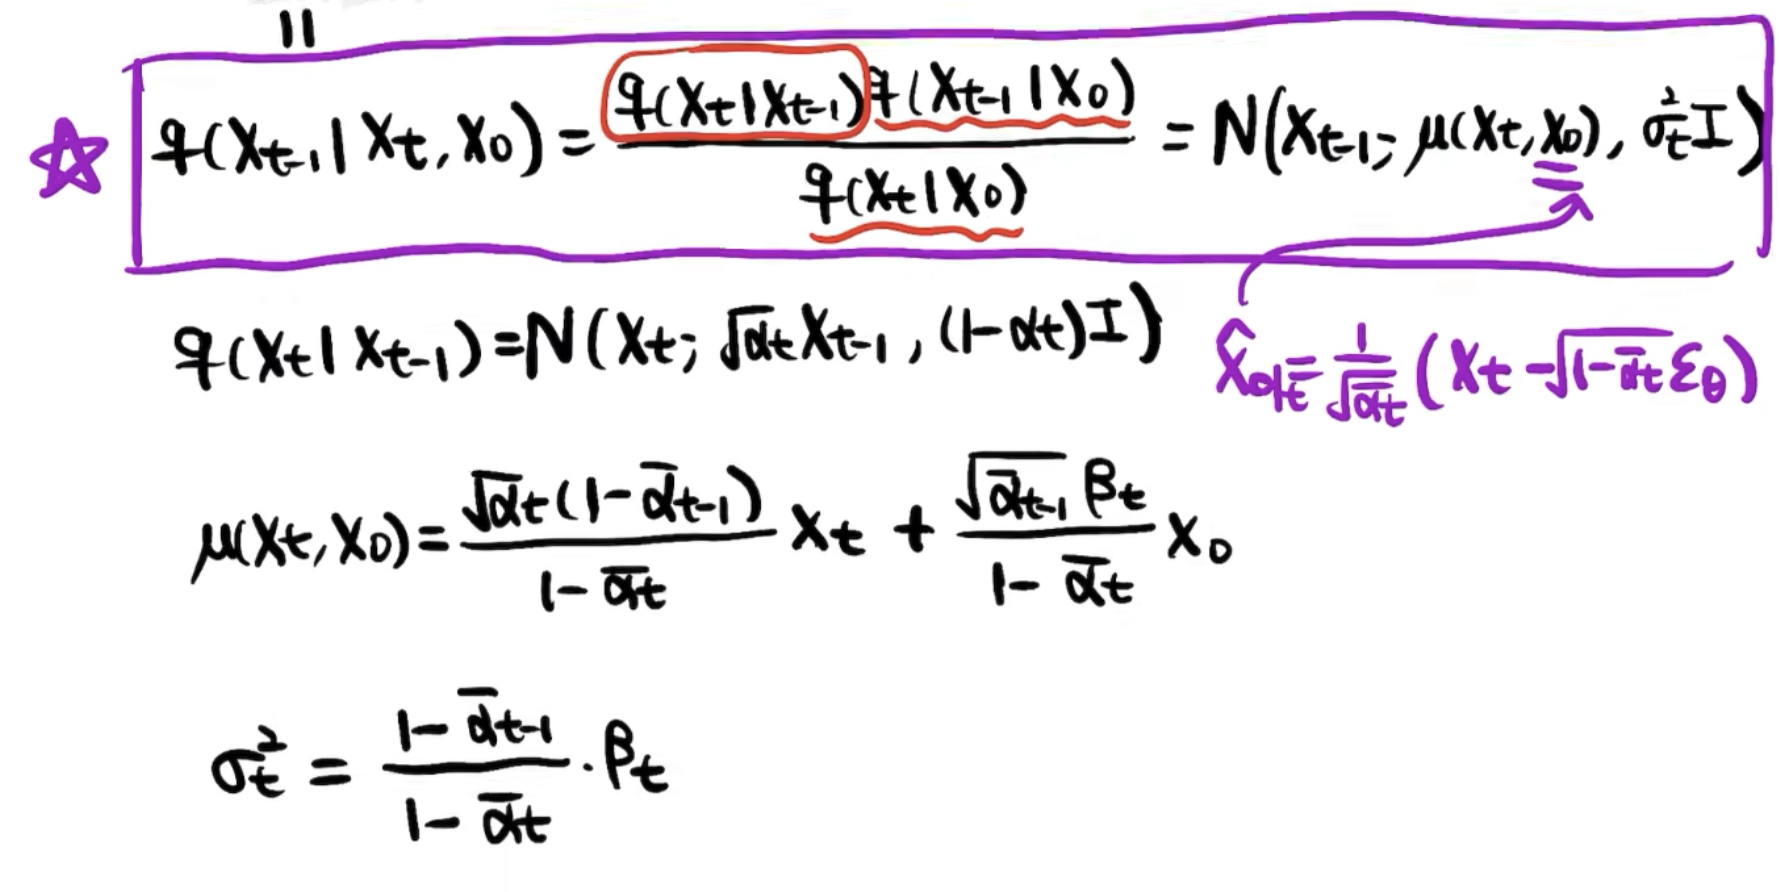 ||
☆ q(x_{t-1} | x_t, x_0) = \frac{q(x_t | x_{t-1}) q(x_{t-1} | x_0)}{q(x_t | x_0)} = N(x_{t-1}; μ(x_t, x_0), σ_t^2 I)
q(x_t | x_{t-1}) = N(x_t; \sqrt{α_t} x_{t-1}, (1-α_t) I)
\hat{x}_{0|t} = \frac{1}{\sqrt{\bar{α}_t}} (x_t - \sqrt{1-\bar{α}_t} ε_θ)
μ(x_t, x_0) = \frac{\sqrt{α_t} (1-\bar{α}_{t-1})}{1-\bar{α}_t} x_t + \frac{\sqrt{\bar{α}_{t-1}} β_t}{1-\bar{α}_t} x_0
σ_t^2 = \frac{1-\bar{α}_{t-1}}{1-\bar{α}_t} · β_t